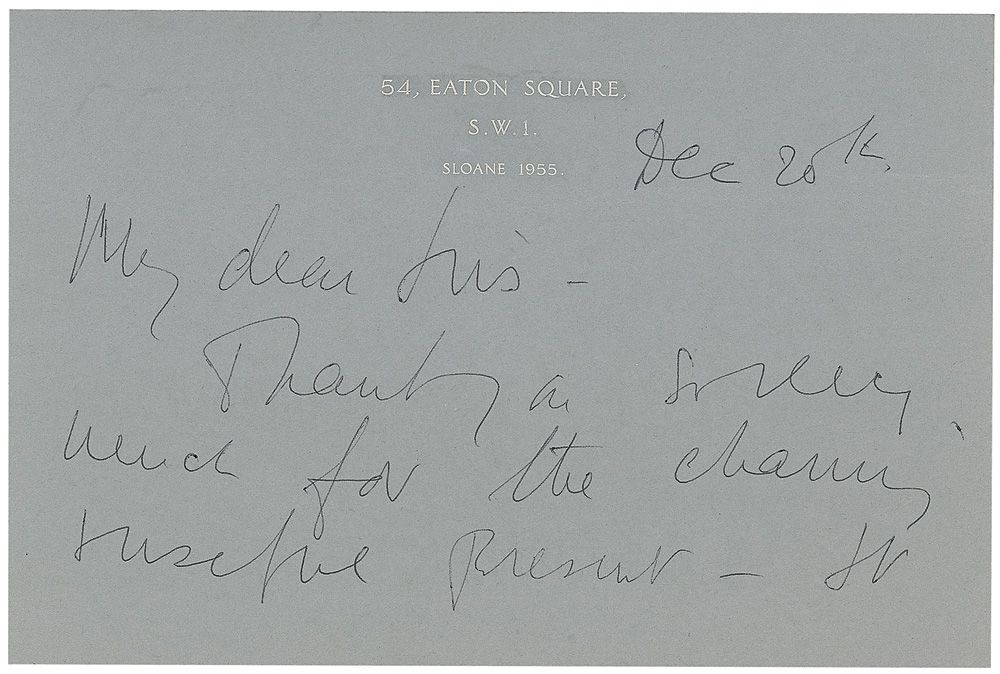 54, EATON SQUARE,
S.W.1.
SLOANE 1955.
Dec 20th.
My dear Iris –
Thank you so very
much for the charming
& useful present – It